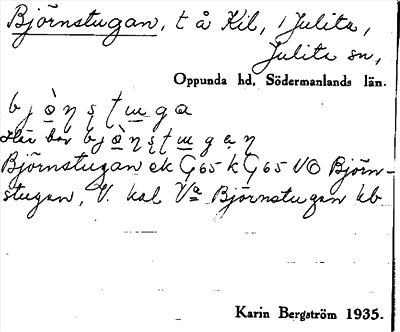 Björnstugan, t å Kil, i Julita,
Julita sn,
Oppunda hd, Södermanlands län.
bjò̱ɳʂʈɯ̱ga
här bor bjò̱ɳʂʈɯ̱gạɳ
Björnstugan ek G65 k G65 VO Björn-
stugan, V. kal Va Björnstugan kb
Karin Bergström 1935.